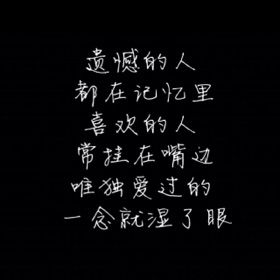 遗憾的人
都在记忆里
喜欢的人
常挂在嘴边
唯独爱过的
一念就湿了眼